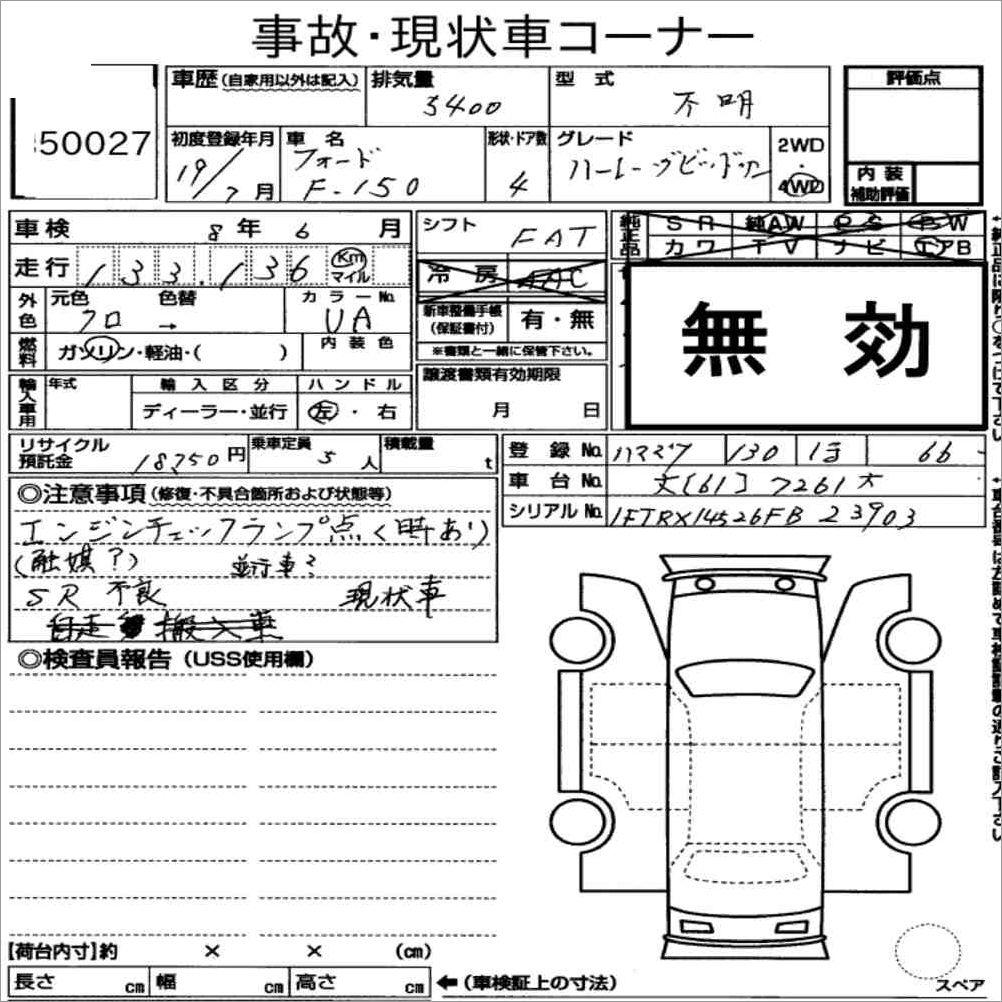 事故・現状車コーナー
50027
車歴(自家用以外は記入)
排気量
5400
型式
不明
評価点
初度登録年月
19/7月
車名
フォード
F-150
形状・ドア数
4
グレード
ハーレーダビッドソン
2WD
・
4WD
内装
補助評価
車検 8年 6月
シフト
FAT
純正品
SR 純AW PS PW
カワ TV ナビ エアB
走行 133,136 Km
マイル
冷房 AAC
無効
外色
元色 色替
クロ →
カラーNo.
UA
新車整備手帳
(保証書付)
有・無
※書類と一緒に保管下さい。
燃料
ガソリン・軽油・( )
内装色
輸入車用
年式
輸入区分
ディーラー・並行
ハンドル
左・右
譲渡書類有効期限
月 日
リサイクル
預託金
18250円
乗車定員
5人
積載量
t
登録No. ハママツ 130 は 66
車台No. 大[61]7261大
シリアルNo. 1FTRX14526FB23903
◎注意事項(修復・不具合箇所および状態等)
エンジンチェックランプ点く(時あり)
(触媒?) 並行車?
SR不良 現状車
自走 搬入車
◎検査員報告(USS使用欄)
【荷台内寸】約 × × (cm)
長さ cm 幅 cm 高さ cm ←(車検証上の寸法)
スペア